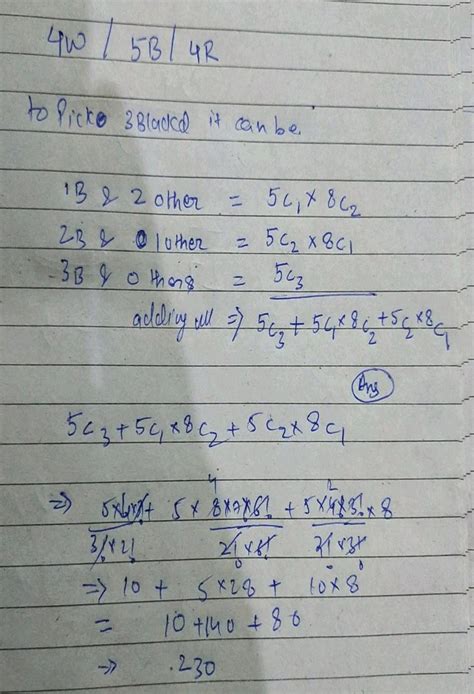 4W / 5B / 4R
to Picke 3Blackd it can be.
1B & 2 other = 5C₁ × 8C₂
2B & 1 other = 5C₂ × 8C₁
3B & 0 others = 5C₃
adding all ⇒ 5C₃ + 5C₁ × 8C₂ + 5C₂ × 8C₁
Ans
5C₃ + 5C₁ × 8C₂ + 5C₂ × 8C₁
⇒ 5×4×3!/3!×2! + 5 × 8×7×6!/2!×6! + 5×4×3!/2!×3! × 8
⇒ 10 + 5×28 + 10×8
= 10+140+80
→ .230